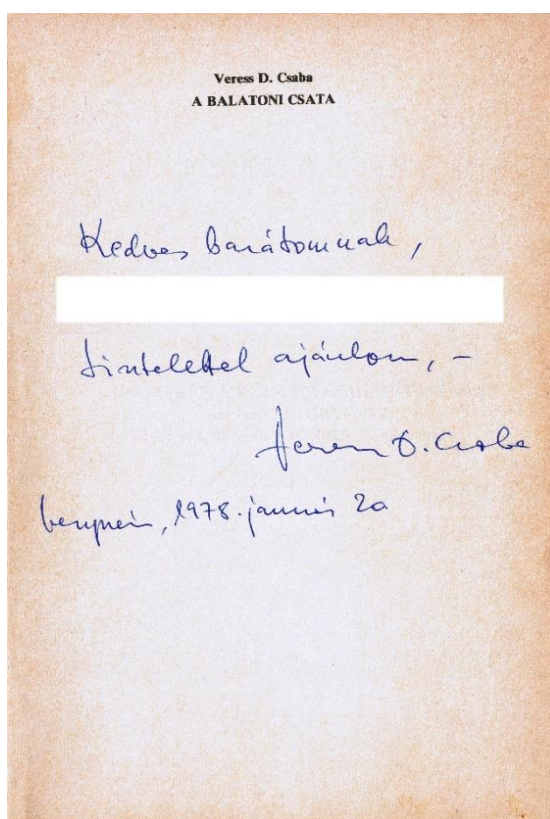 Veress D. Csaba
A BALATONI CSATA
Kedves barátomnak,
tisztelettel ajánlom, –
Veress D. Csaba
Veszprém, 1978. január 20